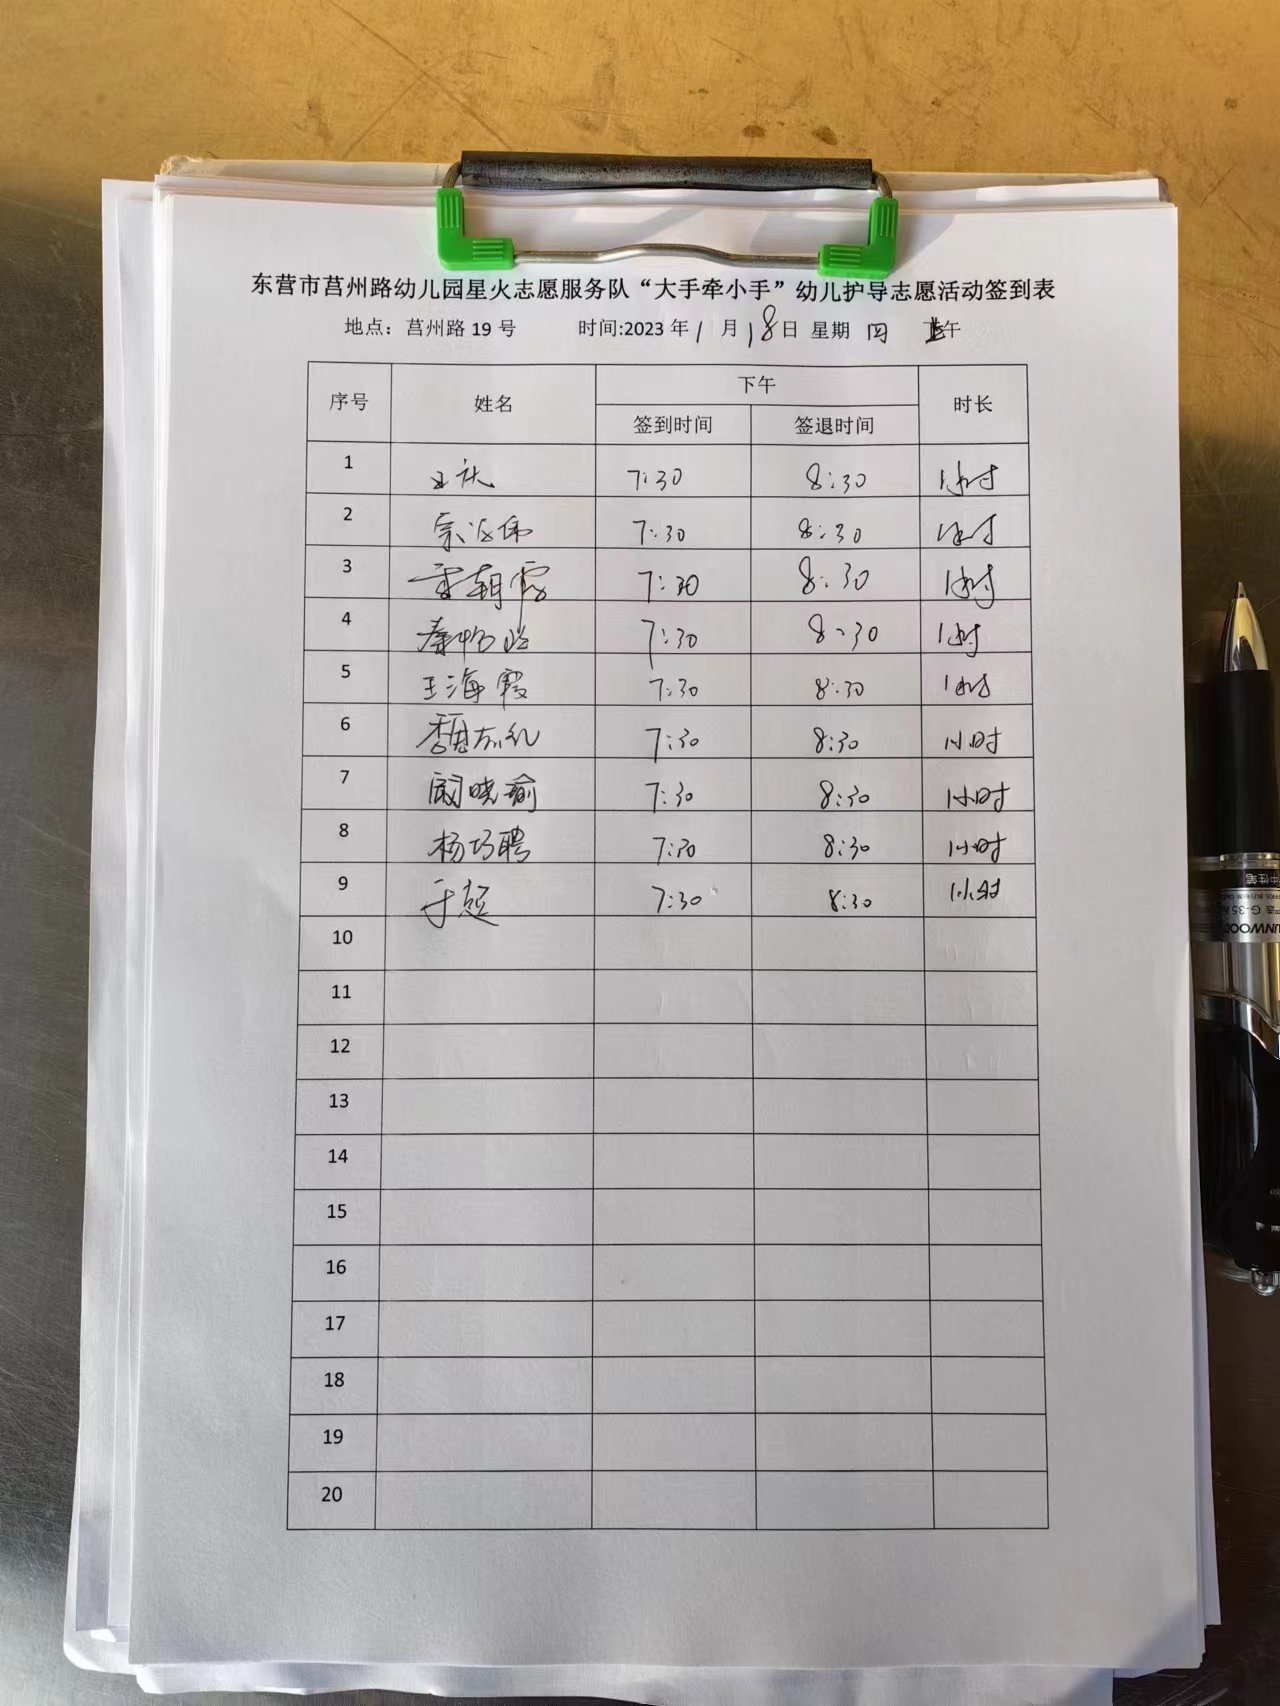 东营市莒州路幼儿园星火志愿服务队“大手牵小手”幼儿护导志愿活动签到表
地点：莒州路 19 号 时间:2023 年 1 月 18 日 星期 四 上午
序号 姓名 下午 时长
签到时间 签退时间
1 7:30 8:30 1小时
2 7:30 8:30 1小时
3 7:30 8:30 1小时
4 7:30 8:30 1小时
5 王海霞 7:30 8:30 1小时
6 7:30 8:30 1小时
7 阚晓瑜 7:30 8:30 1小时
8 杨巧聘 7:30 8:30 1小时
9 于超 7:30 8:30 1小时
10
11
12
13
14
15
16
17
18
19
20